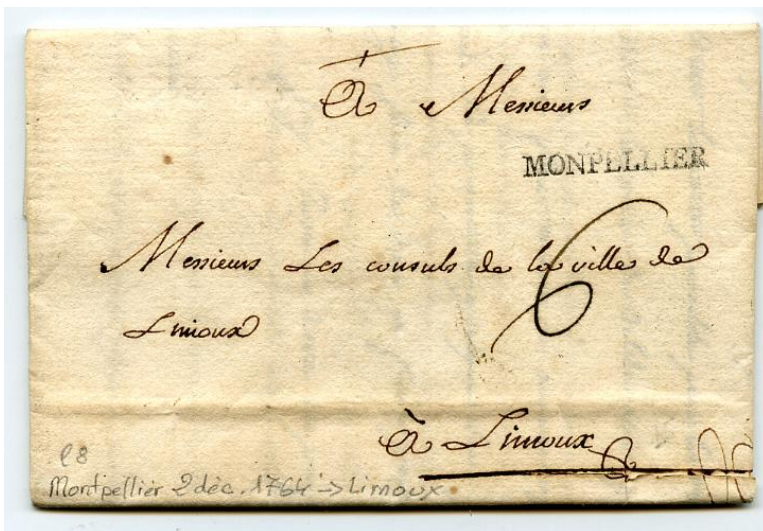 A Messieurs
MONPELLIER
Messieurs Les consuls de la ville de
Limoux
6
à Limoux
P8
Montpellier 2 déc. 1764 -> Limoux